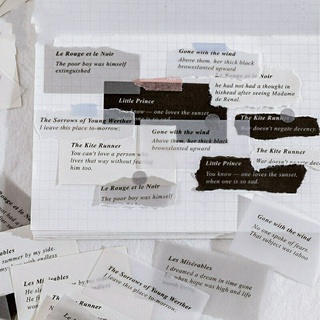 Le Rouge et le Noir
The poor boy was himself
extinguished
Gone with the wind
Above them, her thick black
brows slanted upward
Le Rouge et le Noir
he had not had a thought in
his head after seeing Madame
de Renal.
Little Prince
You know — one loves the sunset,
The Sorrows of Young Werther
I leave this place to-morrow;
Gone with the wind
Above them, her thick black
brows slanted upward
The Kite Runner
War doesn't negate decency.
The Kite Runner
You can't love a person who
lives that way without fear
him too.
The Kite Runner
War doesn't negate dece
Little Prince
You know — one loves the sunset,
when one is so sad.
Le Rouge et le Noir
The poor boy was himself
Gone with the wind
No one spoke of fears
That subject was taboo
summer by my side.
with endless
Les Misérables
I dreamed a dream in time gone
when hope was high and life
The Sorrows of Young Werther
I leave this place to-morrow;
Runner